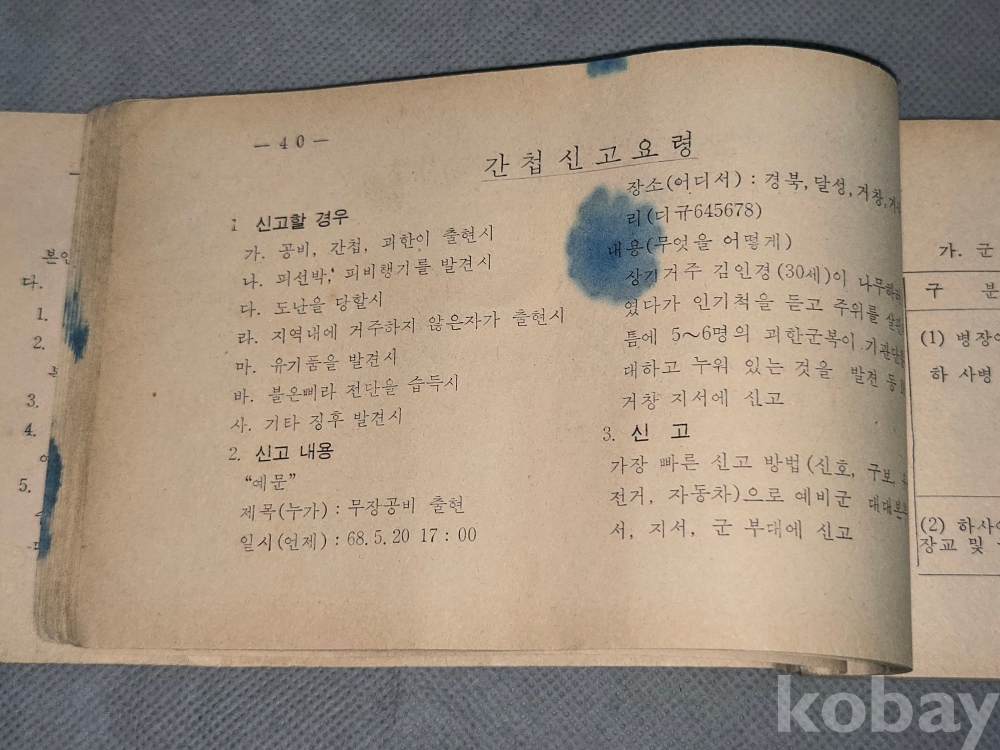 — 40 —
간첩신고요령
1 신고할 경우
가. 공비, 간첩, 괴한이 출현시
나. 피선박, 피비행기를 발견시
다. 도난을 당할시
라. 지역내에 거주하지 않은자가 출현시
마. 유기품을 발견시
바. 불온삐라 전단을 습득시
사. 기타 징후 발견시
2. 신고 내용
“예문”
제목(누가) : 무장공비 출현
일시(언제) : 68.5.20 17 : 00
장소(어디서) : 경북, 달성, 거창,
리(디규645678)
내용(무엇을 어떻게)
상기거주 김인경(30세)이
였다가 인기척을 듣고 주위를
틈에 5~6명의 괴한군복이
대하고 누워 있는 것을 발견
거창 지서에 신고
3. 신 고
가장 빠른 신고 방법(신호, 구보
전거, 자동차)으로 예비군
서, 지서, 군 부대에 신고
다.
1.
2.
3.
4.
5.
가. 군
구 분
(1) 병장
하 사병
(2) 하사
장교 및
kobay